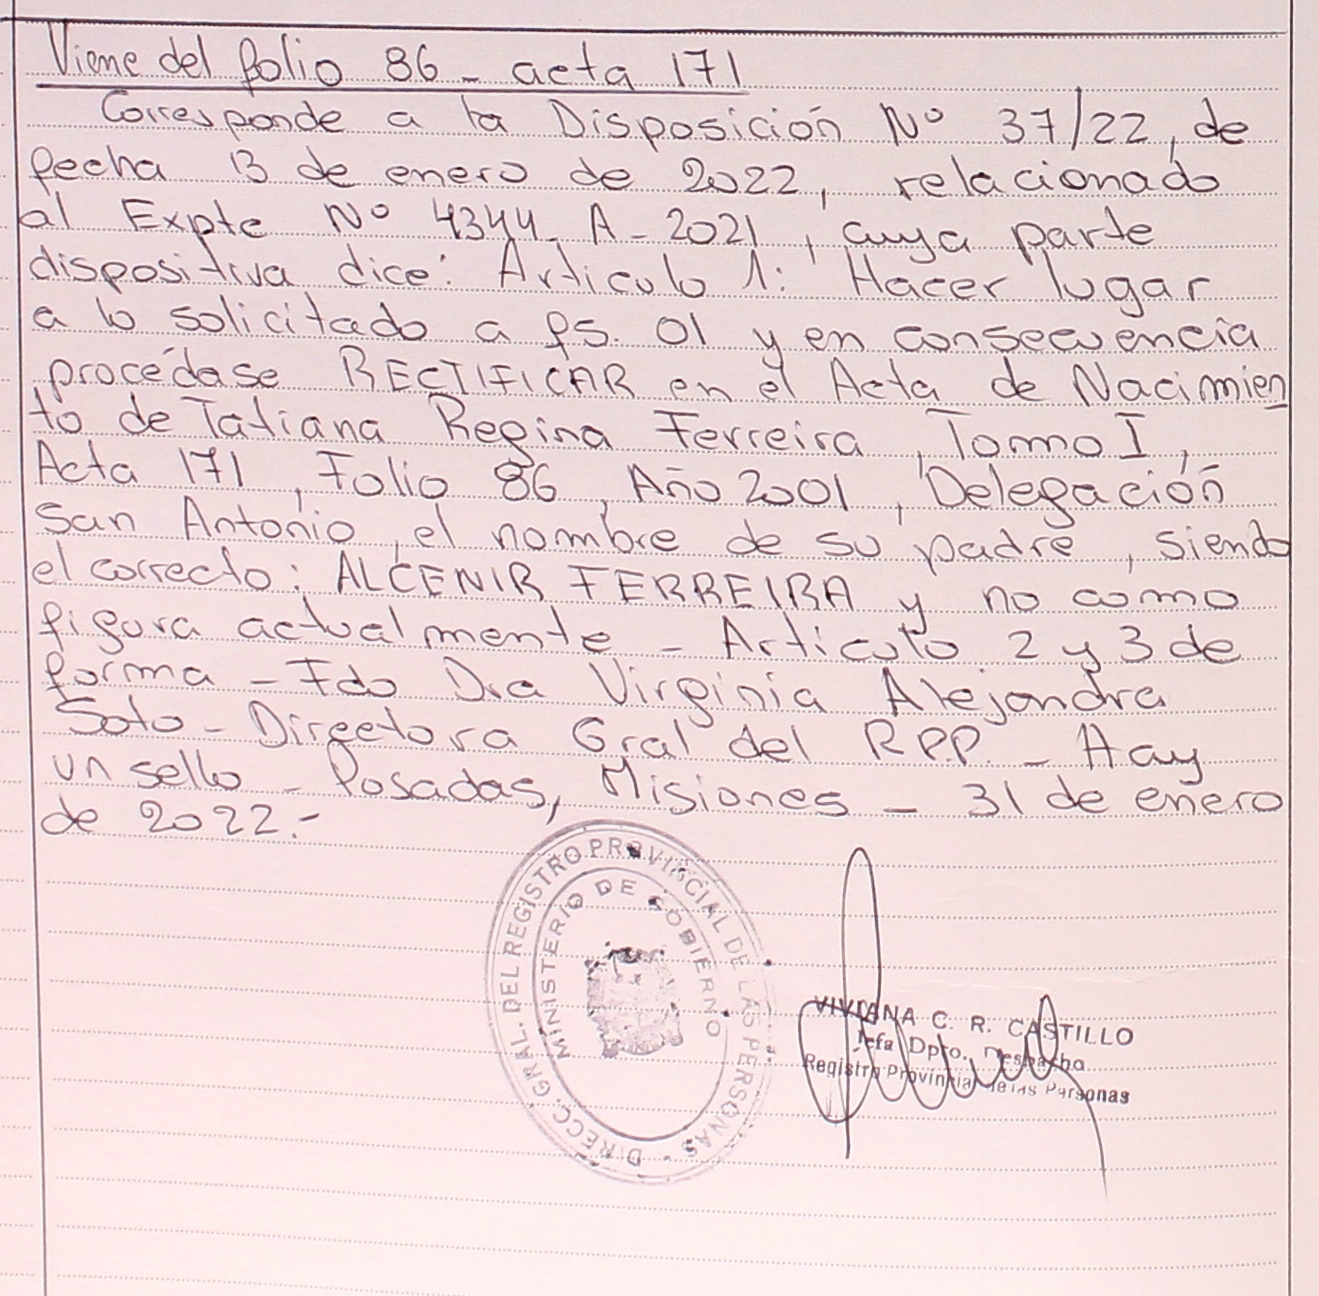 Viene del folio 86 - acta 171
Corresponde a la Disposición Nº 37/22, de
fecha 13 de enero de 2022, relacionado
al Expte Nº 4344-A-2021, cuya parte
dispositiva dice: Articulo 1: Hacer lugar
a lo solicitado a fs. 01 y en consecuencia
procédase RECTIFICAR en el Acta de Nacimien
to de Tatiana Regina Ferreira, Tomo I,
Acta 171, Folio 86, Año 2001, Delegación
San Antonio, el nombre de su padre, siendo
el correcto: ALCENIR FERREIRA y no como
figura actualmente - Articulo 2 y 3 de
forma - Fdo Dra Virginia Alejandra
Soto - Directora Gral del R.P.P. - Hay
un sello - Posadas, Misiones - 31 de enero
de 2022.-
DIRECC. GRAL. DEL REGISTRO PROVINCIAL DE LAS PERSONAS -
MINISTERIO DE GOBIERNO
VIVIANA C. R. CASTILLO
Jefa Dpto. Despacho
Registro Provincial de las Personas